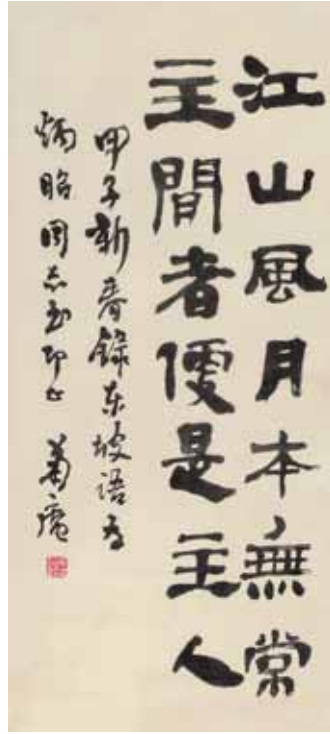 江山風月本無常
主間者便是主人
甲子新春錄东坡語为
炳昭同志 印正 菊庵